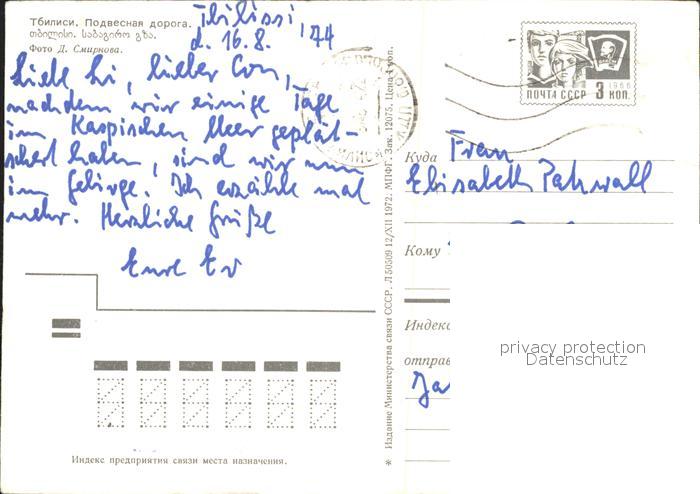 Тбилиси. Подвесная дорога.
თბილისი. საბაგირო გზა.
Фото Д. Смирнова.
Tbilissi,
d. 16.8. '74
Liebe Li, lieber Con,
nachdem wir einige Tage
im Kaspischen Meer geplät-
schert haben, sind wir nun
im Gebirge. Ich erzähle mal
mehr. Herzliche Grüße
Eure Ev
Индекс предприятия связи места назначения.
* Издание Министерства связи СССР. Л 50509 12/XII 1972. МПФГ. Зак. 12075. Цена 4 коп.
ПОЧТА СССР 3 КОП.
1966
Куда
Frau
Elisabeth
Кому
Индекс
отправ
privacy protection
Datenschutz